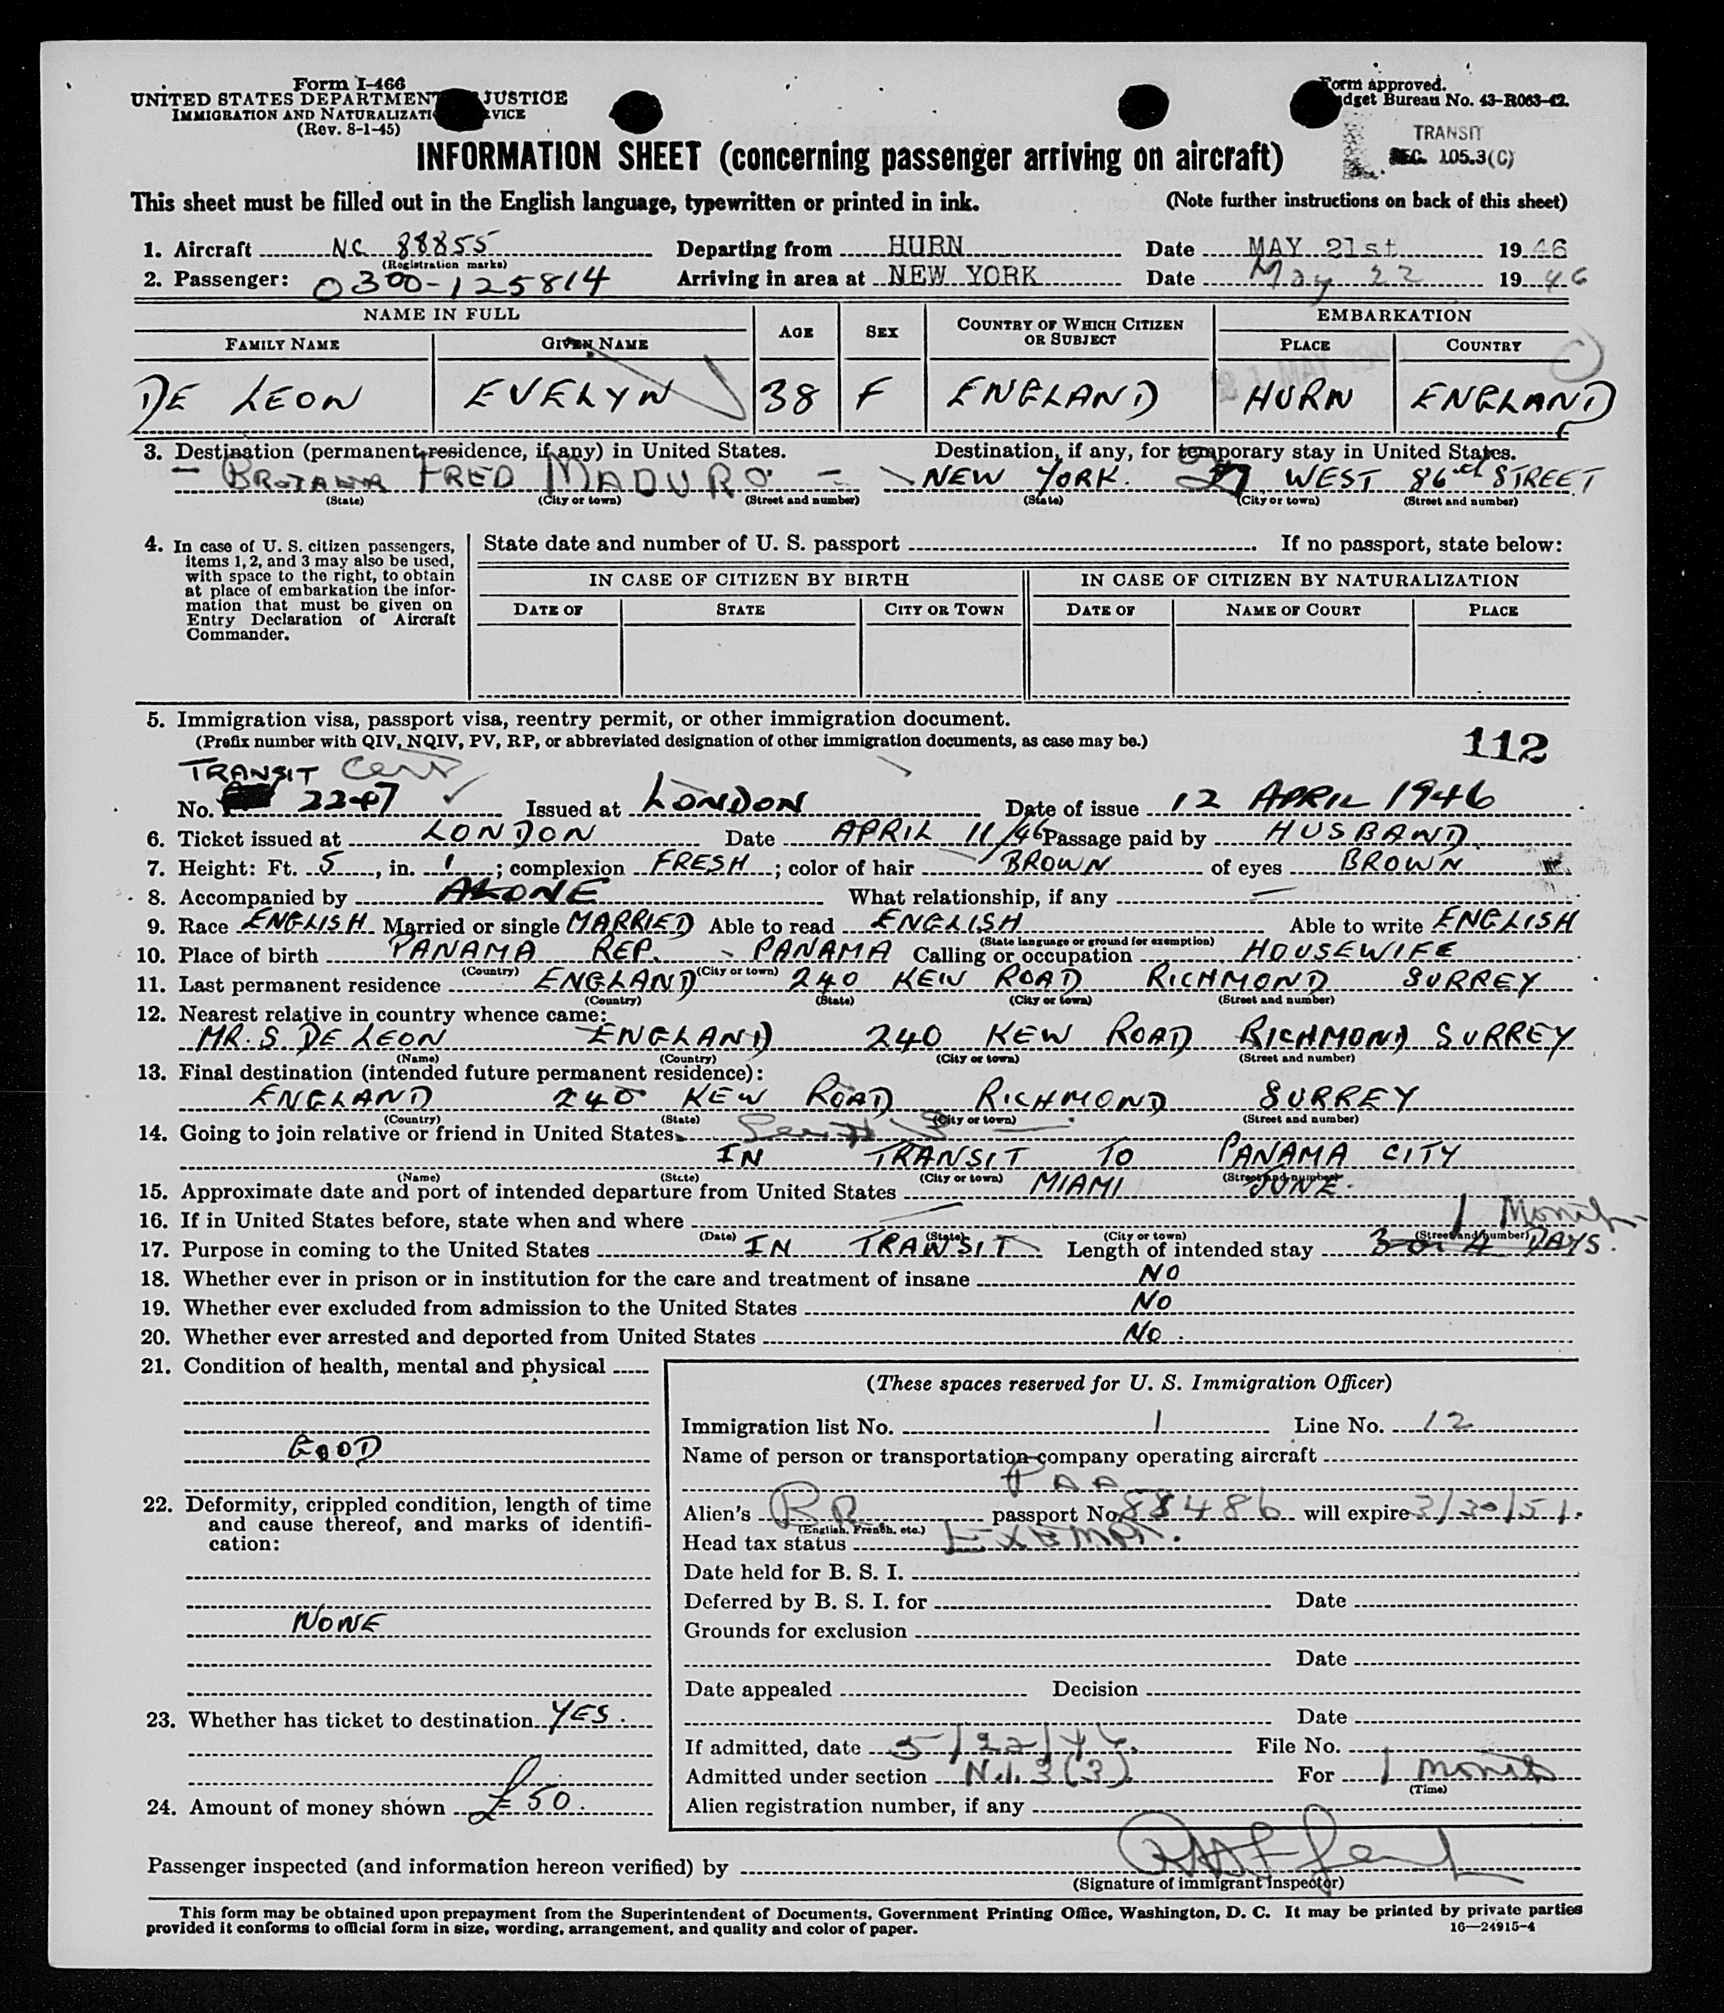 Form I-466
UNITED STATES DEPARTMENT JUSTICE
IMMIGRATION AND NATURALIZATI VICE
(Rev. 8-1-45)
Form approved.
dget Bureau No. 43-R063-42.
TRANSIT
SEC. 105.3(C)
INFORMATION SHEET (concerning passenger arriving on aircraft)
This sheet must be filled out in the English language, typewritten or printed in ink. (Note further instructions on back of this sheet)
1. Aircraft NC 88855 Departing from HURN Date MAY 21st 1946
(Registration marks)
2. Passenger: 0300-125814 Arriving in area at NEW YORK Date May 22 1946
NAME IN FULL AGE SEX COUNTRY OF WHICH CITIZEN OR SUBJECT EMBARKATION
FAMILY NAME GIVEN NAME PLACE COUNTRY
DE LEON EVELYN 38 F ENGLAND HURN ENGLAND
3. Destination (permanent residence, if any) in United States. Destination, if any, for temporary stay in United States.
FRED MADURO NEW YORK. WEST 86 STREET
(State) (City or town) (Street and number) (State) (City or town) (Street and number)
4. In case of U. S. citizen passengers, items 1, 2, and 3 may also be used, with space to the right, to obtain at place of embarkation the information that must be given on Entry Declaration of Aircraft Commander.
State date and number of U. S. passport If no passport, state below:
IN CASE OF CITIZEN BY BIRTH IN CASE OF CITIZEN BY NATURALIZATION
DATE OF STATE CITY OR TOWN DATE OF NAME OF COURT PLACE
5. Immigration visa, passport visa, reentry permit, or other immigration document.
(Prefix number with QIV, NQIV, PV, RP, or abbreviated designation of other immigration documents, as case may be.)
112
TRANSIT Cert
No. 2247 Issued at LONDON Date of issue 12 APRIL 1946
6. Ticket issued at LONDON Date APRIL 11/46 Passage paid by HUSBAND
7. Height: Ft. 5, in. 1; complexion FRESH; color of hair BROWN of eyes BROWN
8. Accompanied by ALONE What relationship, if any —
9. Race ENGLISH Married or single MARRIED Able to read ENGLISH Able to write ENGLISH
(State language or ground for exemption)
10. Place of birth PANAMA REP. - PANAMA Calling or occupation HOUSEWIFE
(Country) (City or town)
11. Last permanent residence ENGLAND 240 KEW ROAD RICHMOND SURREY
(Country) (State) (City or town) (Street and number)
12. Nearest relative in country whence came:
MR. S. DE LEON ENGLAND 240 KEW ROAD RICHMOND SURREY
(Name) (Country) (City or town) (Street and number)
13. Final destination (intended future permanent residence):
ENGLAND 240 KEW ROAD RICHMOND SURREY
(Country) (State) (City or town) (Street and number)
14. Going to join relative or friend in United States.
IN TRANSIT TO PANAMA CITY
(Name) (State) (City or town) (Street and number)
15. Approximate date and port of intended departure from United States MIAMI JUNE.
16. If in United States before, state when and where —
(Date) (State) (City or town) (Street and number)
1 Month
17. Purpose in coming to the United States IN TRANSIT Length of intended stay 3 or 4 DAYS.
18. Whether ever in prison or in institution for the care and treatment of insane NO
19. Whether ever excluded from admission to the United States NO
20. Whether ever arrested and deported from United States NO.
21. Condition of health, mental and physical
GOOD
22. Deformity, crippled condition, length of time and cause thereof, and marks of identification:
NONE
23. Whether has ticket to destination YES.
24. Amount of money shown £50.
(These spaces reserved for U. S. Immigration Officer)
Immigration list No. 1 Line No. 12
Name of person or transportation company operating aircraft
PAA
Alien's BR. passport No. 88486 will expire 3/30/51.
(English, French, etc.)
Head tax status EXEMPT.
Date held for B. S. I.
Deferred by B. S. I. for Date
Grounds for exclusion
Date
Date appealed Decision
Date
If admitted, date 5/22/46. File No.
Admitted under section 3(3) For 1 month
(Time)
Alien registration number, if any
Passenger inspected (and information hereon verified) by
(Signature of immigrant inspector)
This form may be obtained upon prepayment from the Superintendent of Documents, Government Printing Office, Washington, D. C. It may be printed by private parties
provided it conforms to official form in size, wording, arrangement, and quality and color of paper. 16—24915-4